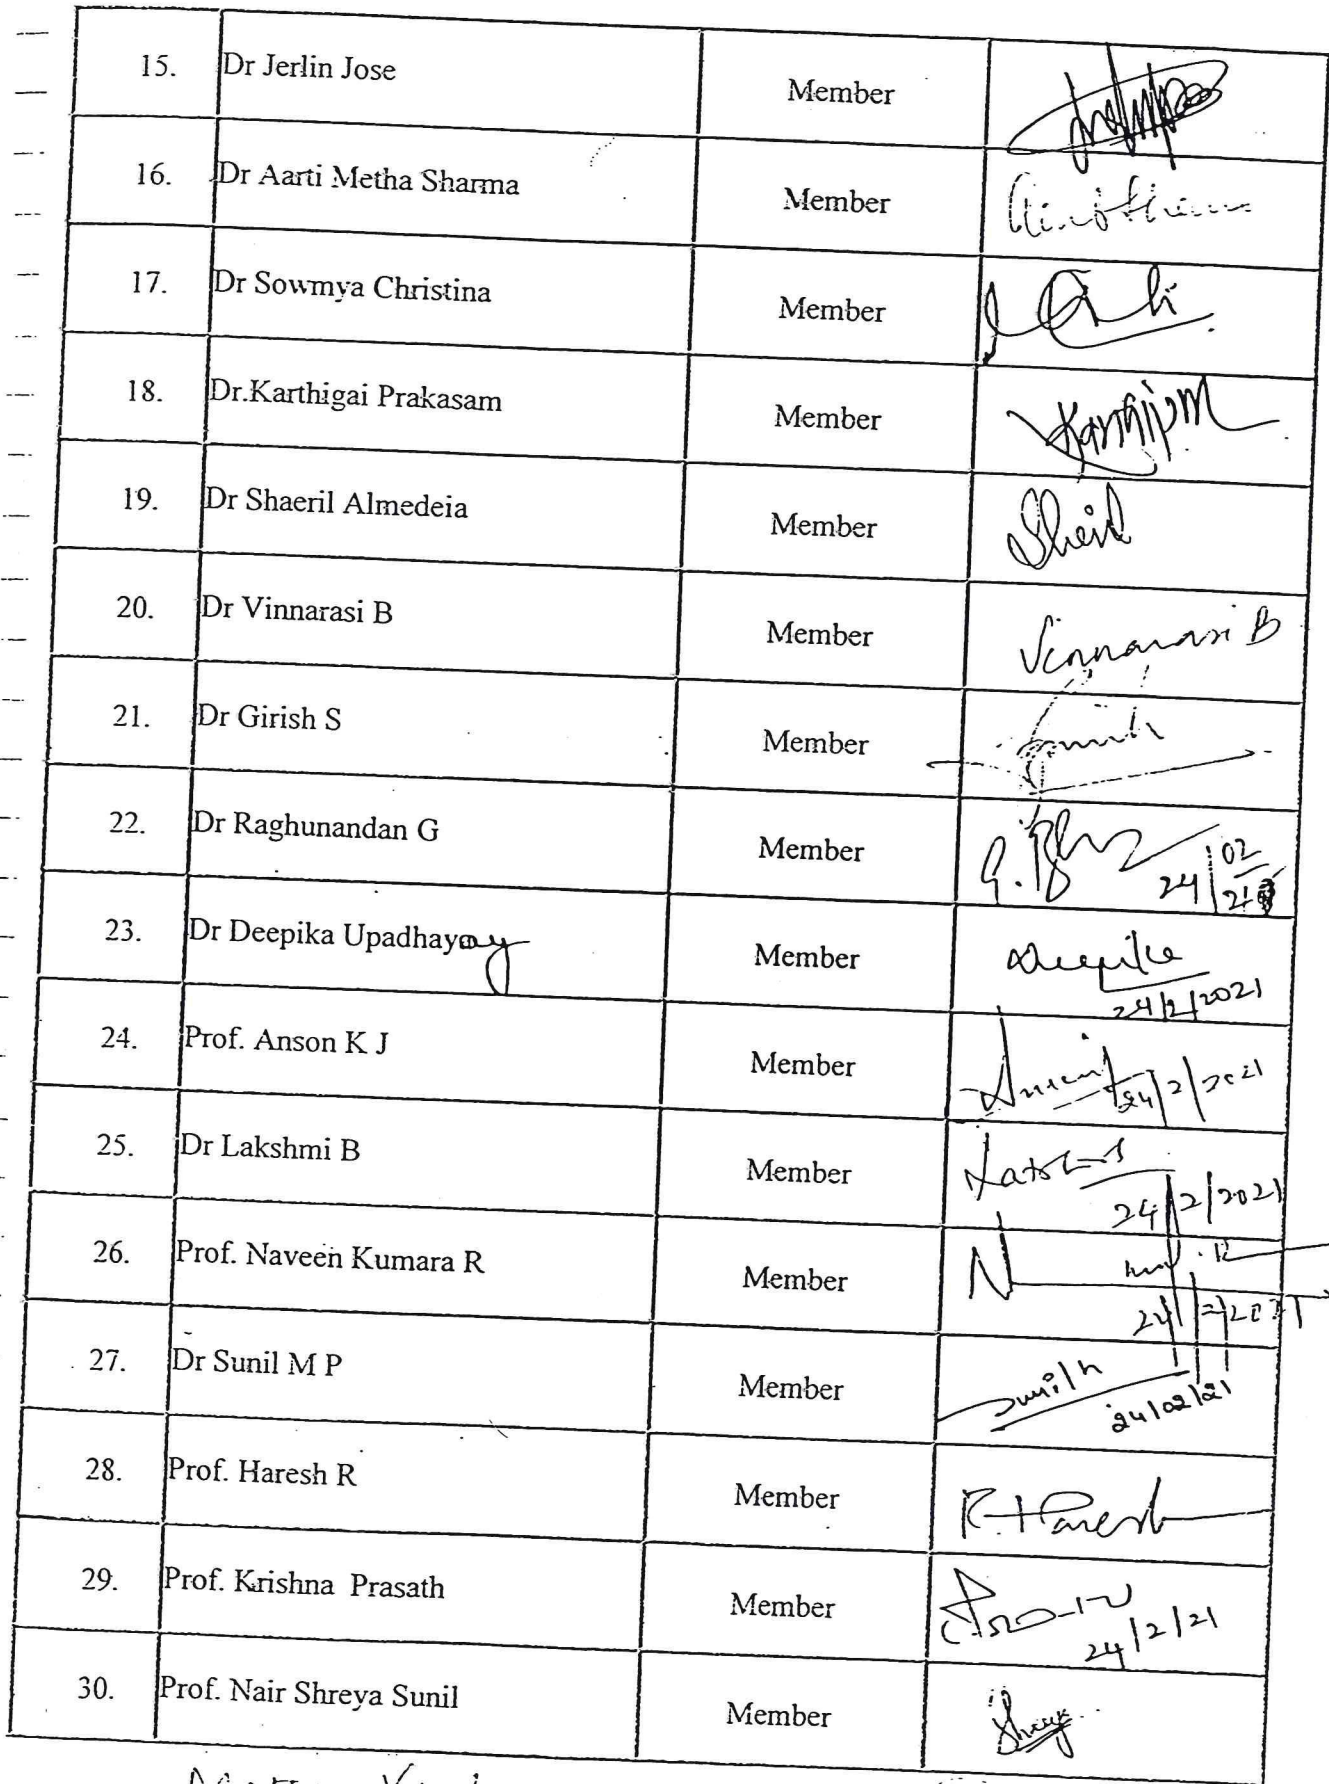 15. Dr Jerlin Jose Member
16. Dr Aarti Metha Sharma Member
17. Dr Sowmya Christina Member
18. Dr.Karthigai Prakasam Member
19. Dr Shaeril Almedeia Member
20. Dr Vinnarasi B Member Vinnarasi B
21. Dr Girish S Member
22. Dr Raghunandan G Member 24/02/21
23. Dr Deepika Upadhayay Member Deepika
24/2/2021
24. Prof. Anson K J Member 24/2/2021
25. Dr Lakshmi B Member
24/2/2021
26. Prof. Naveen Kumara R Member
24/2/2021
27. Dr Sunil M P Member
24/02/21
28. Prof. Haresh R Member R. Haresh
29. Prof. Krishna Prasath Member
24/2/21
30. Prof. Nair Shreya Sunil Member